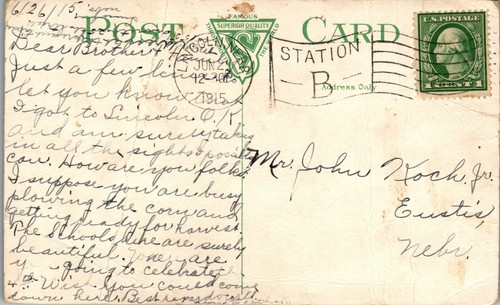 6/26/15
POST CARD
FAMOUS
SUPERIOR QUALITY
THE WORLD
S
LINCOLN, NEBR.
JUN 2
12-30P
1915
STATION
B
Address Only
U.S. POSTAGE
1 CENT 1
Dear Brother
Just a few lines to
let you know that
I got to Lincoln O.K.
and am surely taking
in all the sights I possibly
can. How are you folks.
I suppose you are busy
plowing the corn and
getting ready for harvest.
The Schools here are surely
beautiful. Where are
you going to celebrate
4th. Wish you could come
down here. Best regards to all
Mr. John Koch, Jr.
Eustis,
Nebr.